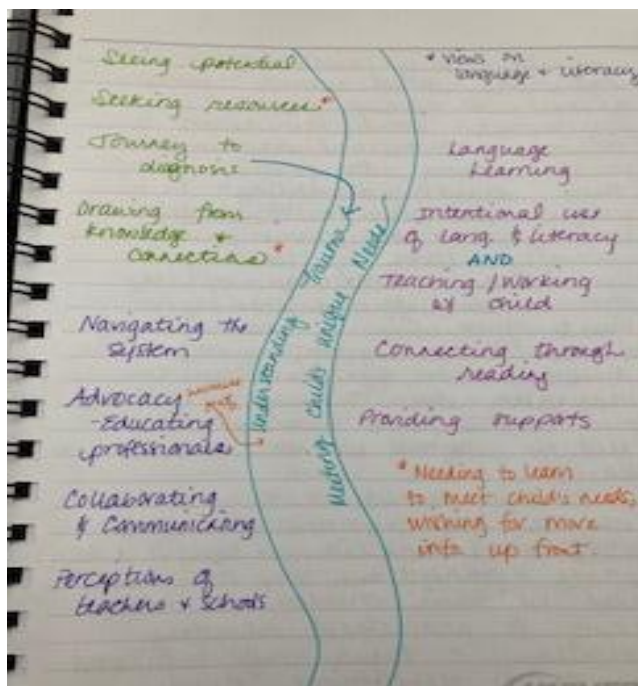 Seeing potential
Seeking resources *
Journey to
diagnosis
Drawing from
knowledge &
connections *
Navigating the
System
Advocacy
- Educating
professionals
Collaborating
& Communicating
Perceptions of
teachers & schools
Understanding Trauma
Meeting child's unique Needs
* Views on
language & literacy
Language
Learning
Intentional use
of Lang. & literacy
AND
Teaching / Working
w/ child
Connecting through
reading
Providing supports
* Needing to learn
to meet child's needs;
wishing for more
info up front